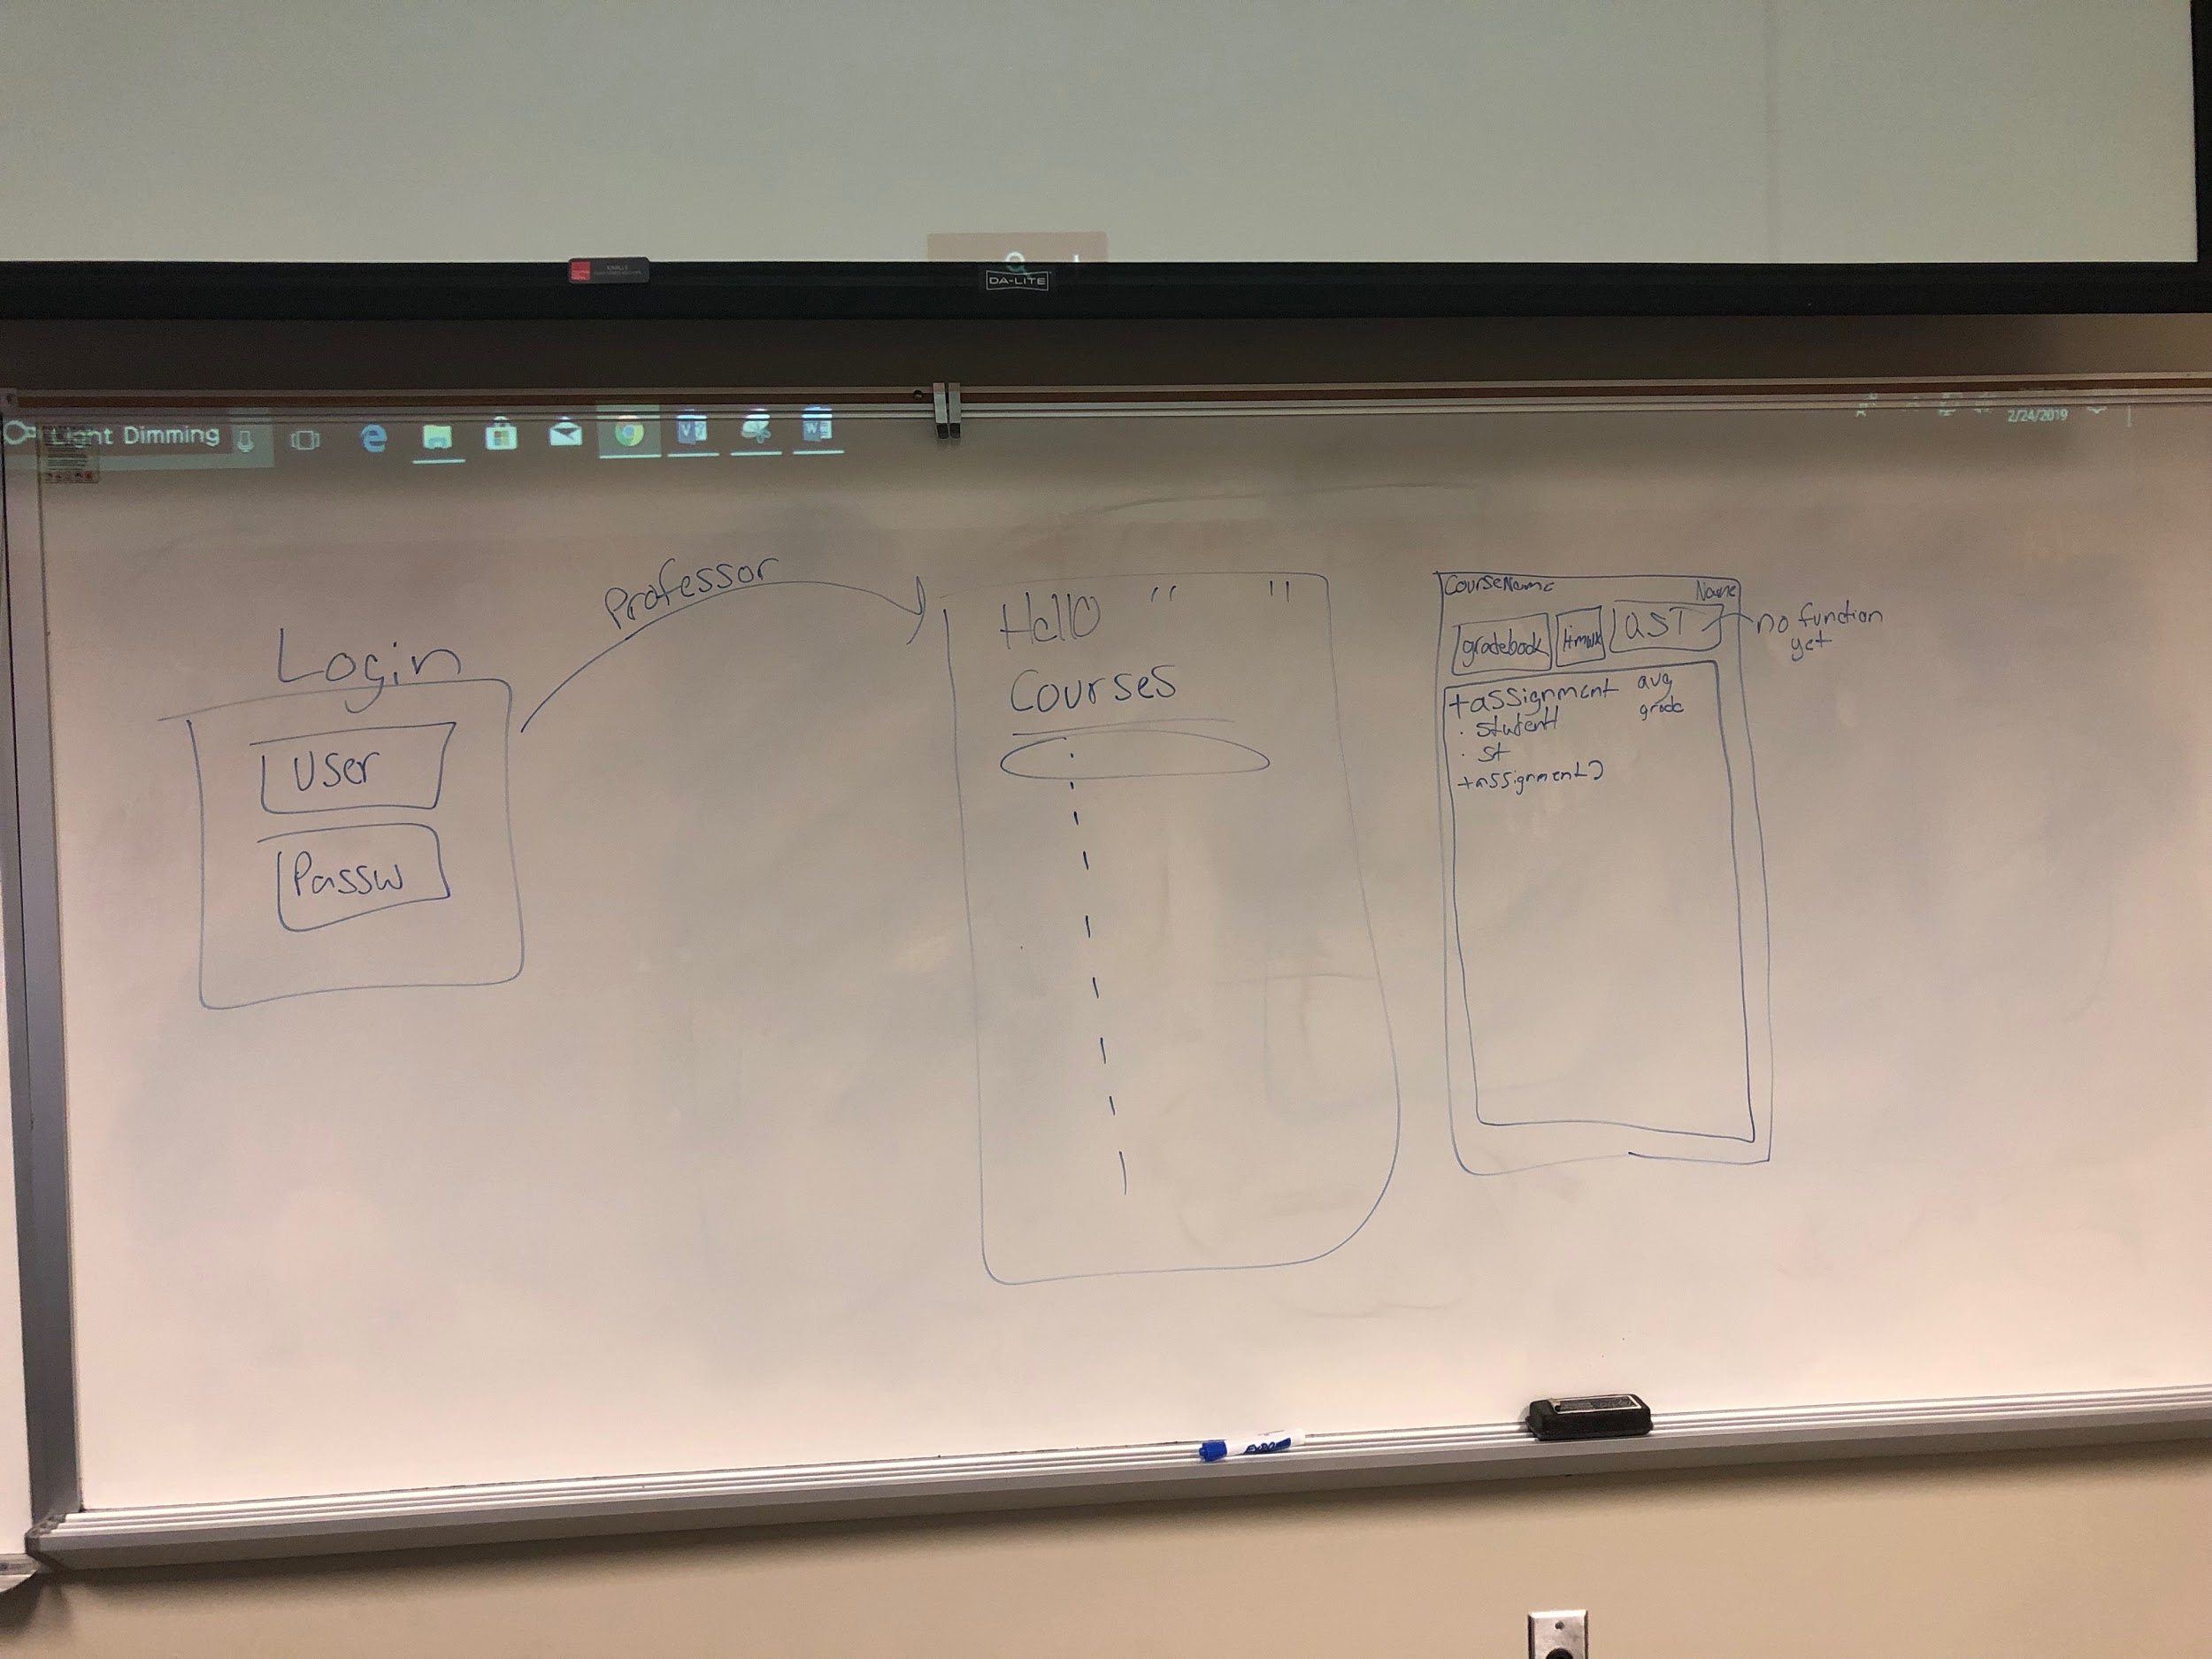 DA-LITE
Light Dimming
2/24/2019
Professor
Login
User
Passw
Hello " "
Courses
CourseName Name
gradebook Hmwk
no function
yet
+assignment avg
grade
· student
· st
+assignment 2
EXPO